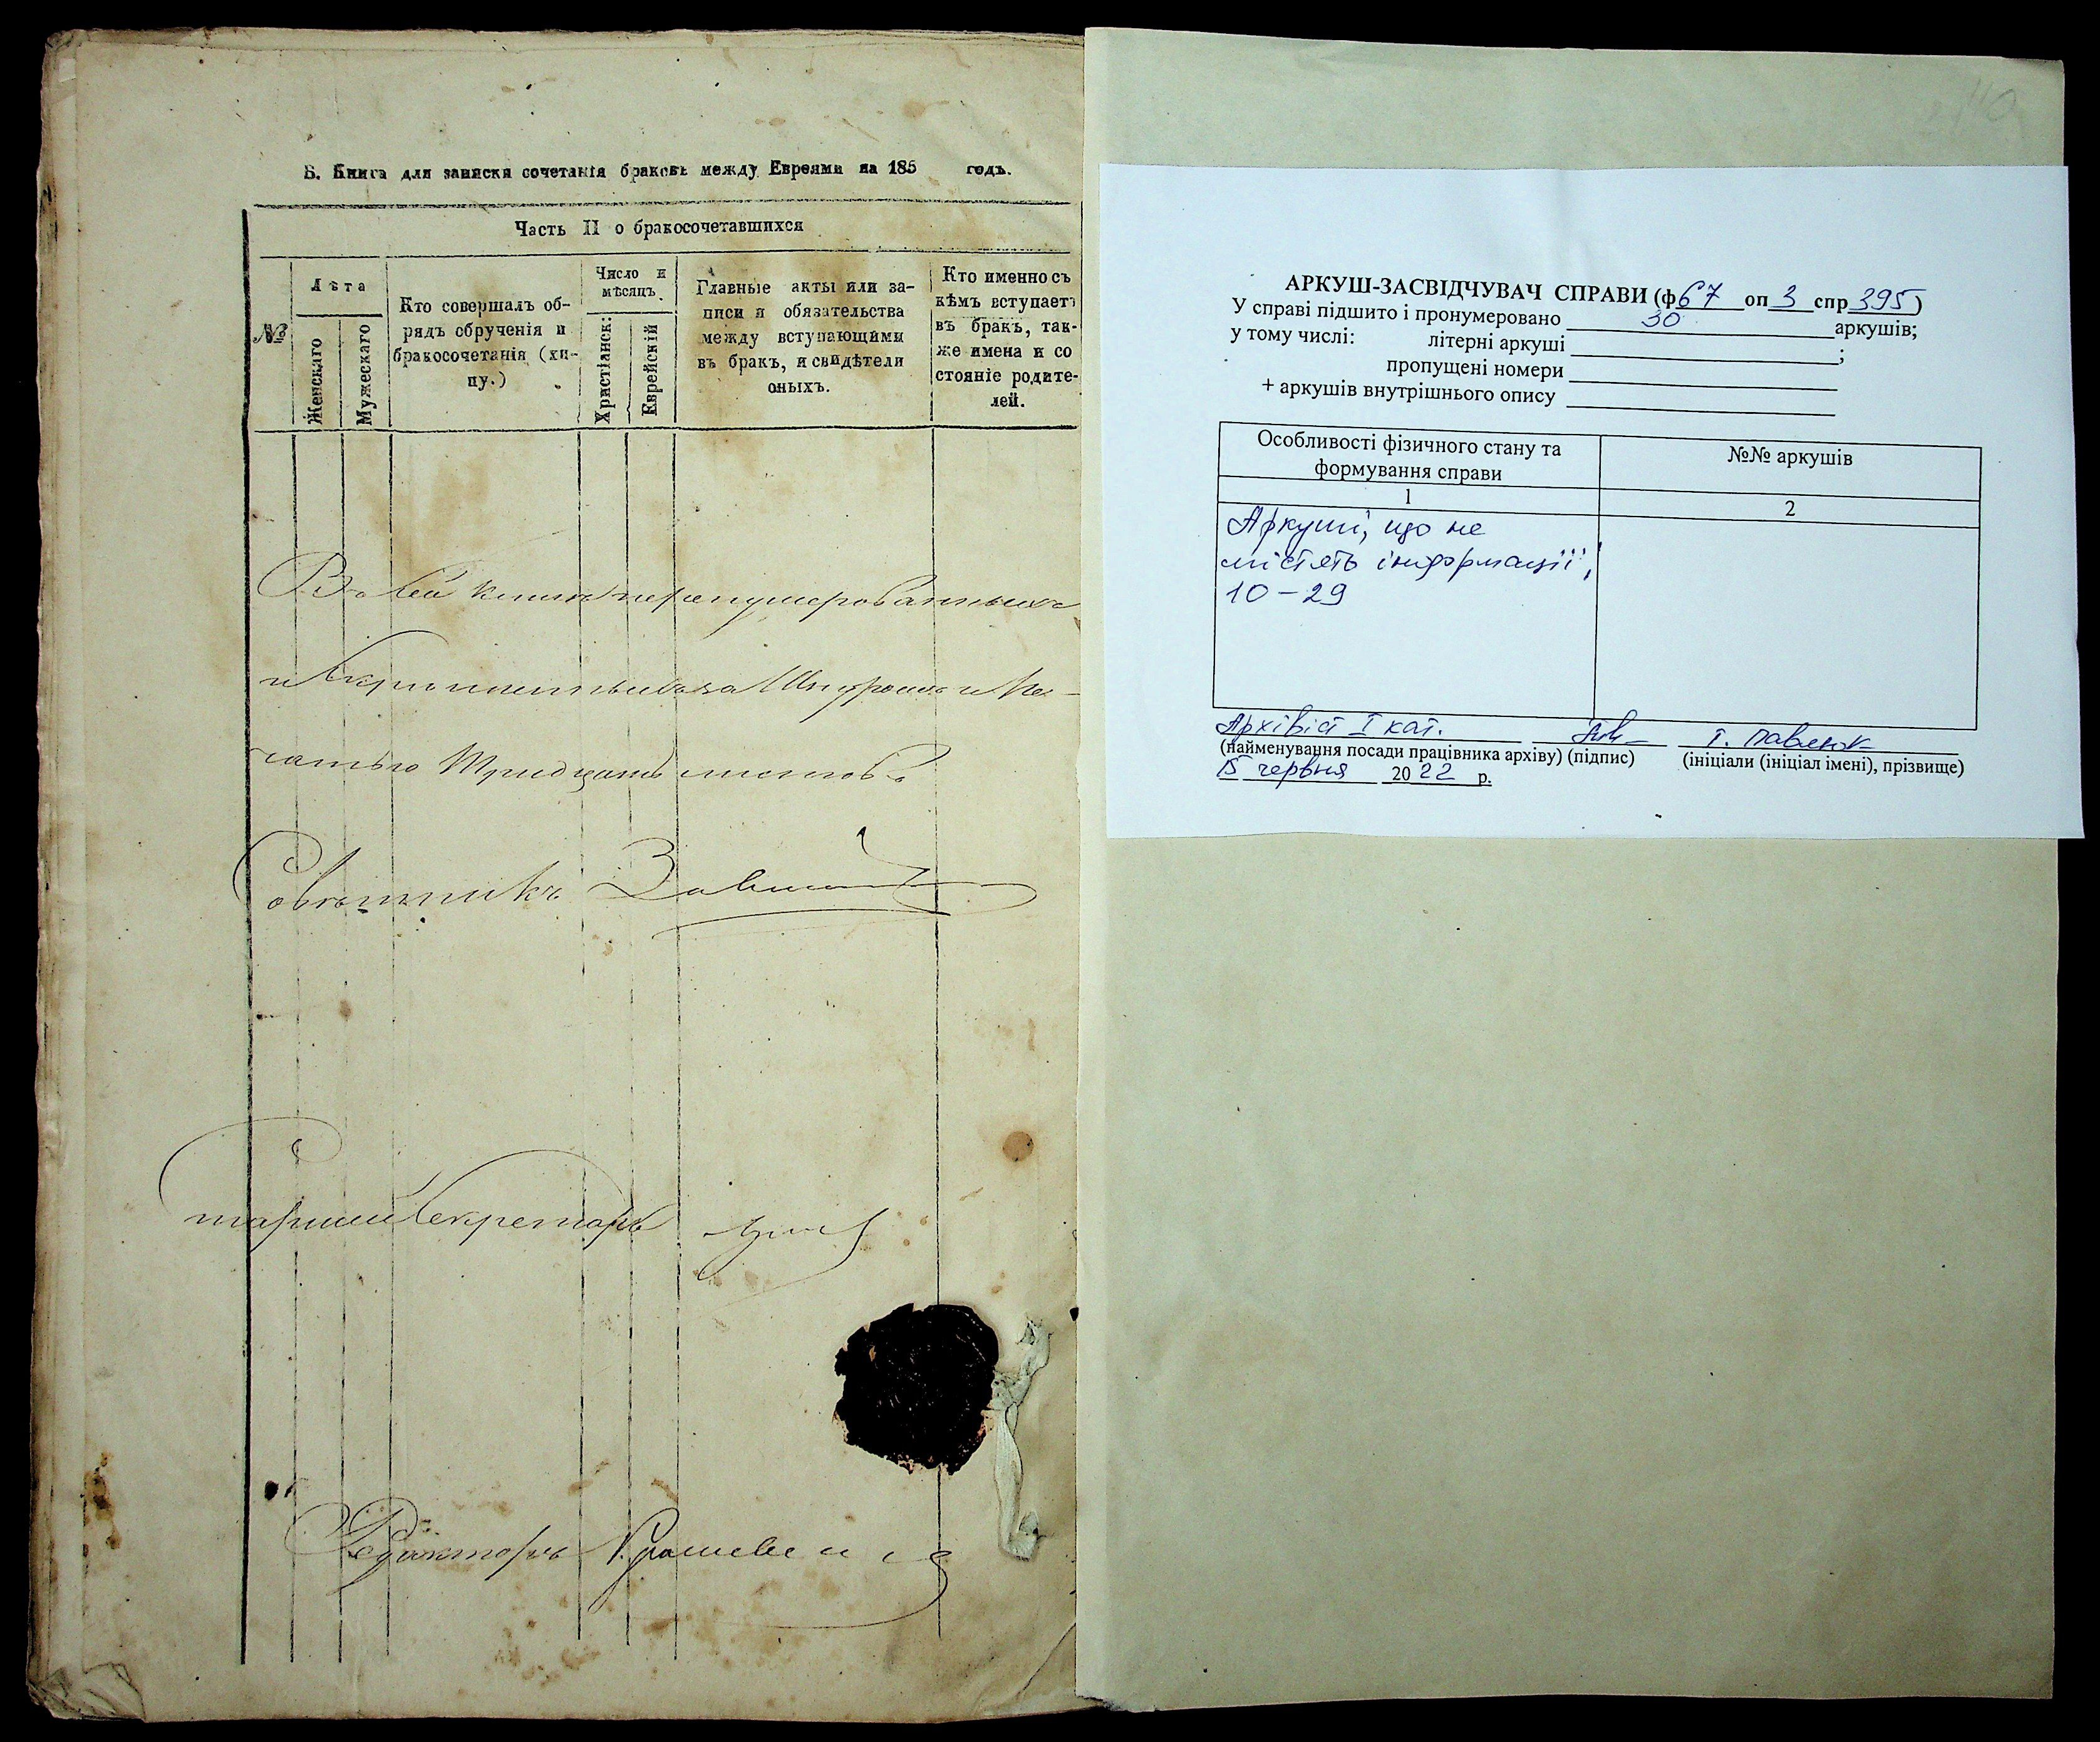 Б. Книга для записки сочетанія браковъ между Евреями на 185 годъ.
Часть II о бракосочетавшихся
№
Лѣта
Женскаго
Мужескаго
Кто совершалъ об-
рядъ обрученія и
бракосочетанія (хи-
пу.)
Число и
мѣсяцъ.
Христіанск:
Еврейскій
Главные акты или за-
писи и обязательства
между вступающими
въ бракъ, и свидѣтели
оныхъ.
Кто именно съ
кѣмъ вступаетъ
въ бракъ, так-
же имена и со
стояніе родите-
лей.
Въ сей книгѣ перенумерованныхъ
и скрѣпленныхъ за Шнуромъ и Пе-
чатью Тридцать листовъ
Совѣтникъ
Старшій Секретарь
Редакторъ
АРКУШ-ЗАСВІДЧУВАЧ СПРАВИ (ф 67 оп 3 спр 395)
У справі підшито і пронумеровано 30 аркушів;
у тому числі: літерні аркуші ;
пропущені номери
+ аркушів внутрішнього опису
Особливості фізичного стану та
формування справи
№№ аркушів
1
2
Аркуші, що не
містять інформації,
10-29
Архівіст I кат. Т. Павлюк
(найменування посади працівника архіву) (підпис) (ініціали (ініціал імені), прізвище)
15 червня 2022 р.